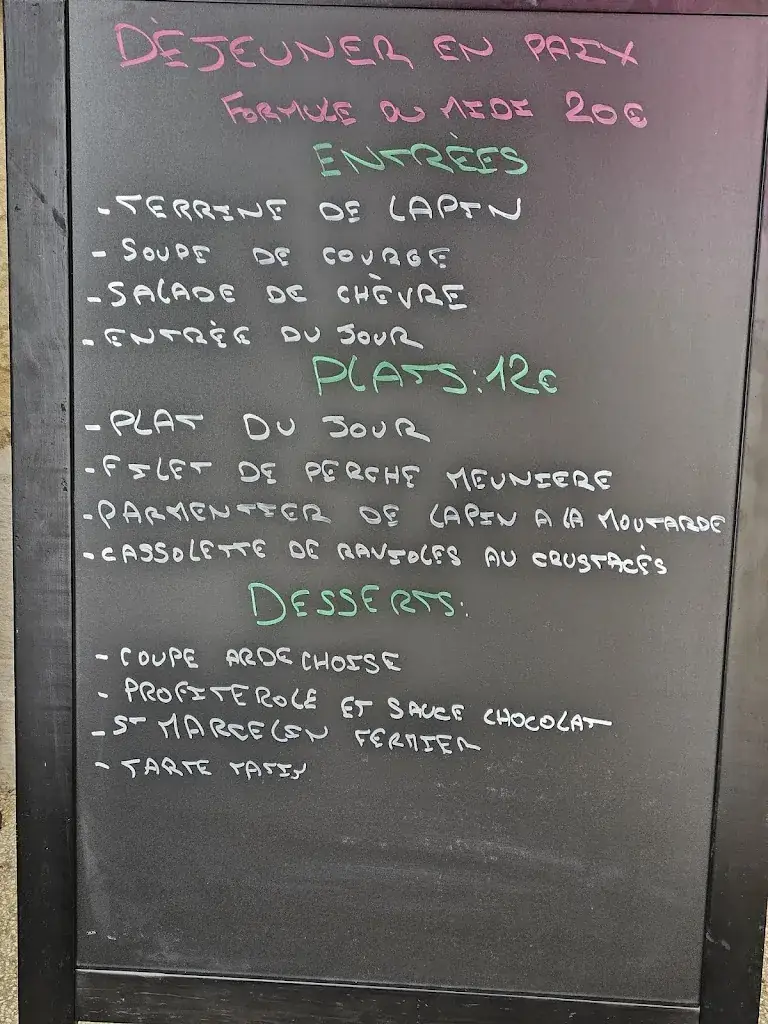 DÉJEUNER EN PAIX
FORMULE DU MIDI 20€
ENTRÉES
- TERRINE DE LAPIN
- SOUPE DE COURGE
- SALADE DE CHÈVRE
- ENTRÉE DU JOUR
PLATS: 12€
- PLAT DU JOUR
- FILET DE PERCHE MEUNIERE
- PARMENTIER DE LAPIN A LA MOUTARDE
- CASSOLETTE DE RAVIOLES AU CRUSTACÉS
DESSERTS:
- COUPE ARDECHOISE
- PROFITEROLE ET SAUCE CHOCOLAT
- ST MARCELIN FERMIER
- TARTE TATIN